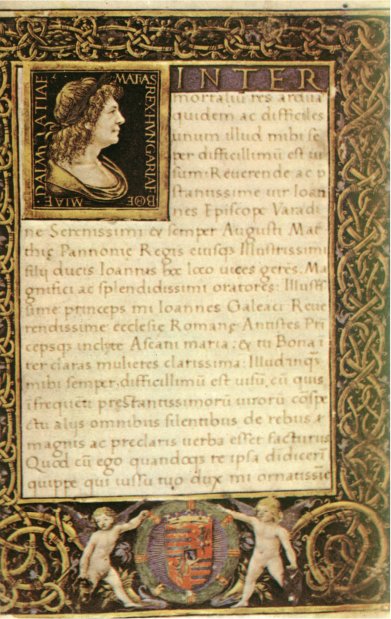 MATIAS REX HVNGARIAE BOE
MIAE DALMATIAE
INTER
mortaliũ res ardua
quidem ac difficiles
unum illud mihi se
per difficillimũ est ui
sum: Reuerende ac p
stantissime uir Ioan
nes Episcope Varadi
ne Serenissimi et semper Augusti Mat
thie Pannonie Regis eiusqз Illustrissimi
filij ducis Ioannis hoc loco uices gerẽs. Ma
gnifici ac splendidissimi oratores: Illust
sime princeps mi Ioannes Galeaci Reue
rendissime ecclesie Romane Antistes Pri
cepsqз inclyte Ascani maria: et tu Bona i
ter claras mulieres clarissima: Illud inqз
mihi semper difficillimũ est uisũ, cũ quis
i frequẽti prestantissimorũ uirorũ cõspe
ctu alijs omnibus silentibus de rebus
magnis ac preclaris uerba esset facturus
Quod cũ ego quandoqз re ipsa didicerĩ
quippe qui iussu tuo dux mi ornatissie